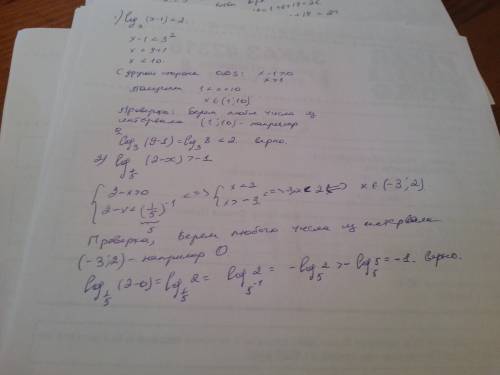 1) log₃(x-1)<2.
x-1<3²
x<9+1
x<10.
С другой стороны ОДЗ: x-1>0
x>1
Получим 1<x<10
x∈(1;10)
Проверка: Берем любое число из
интервала (1;10) - например
9
log₃(9-1)=log₃8<2. верно.
2) log_{1/5}(2-x)>-1
{2-x>0
2-x<(1/5)⁻¹ <=> {x<2
5
x>-3 <=> -3<x<2 <=> x∈(-3;2)
Проверка, Берем любого числа из интервала
(-3;2) - например 0
log_{1/5}(2-0)=log_{1/5}2= log_{5⁻¹}2= -log₅2>-log₅5=-1. Верно.